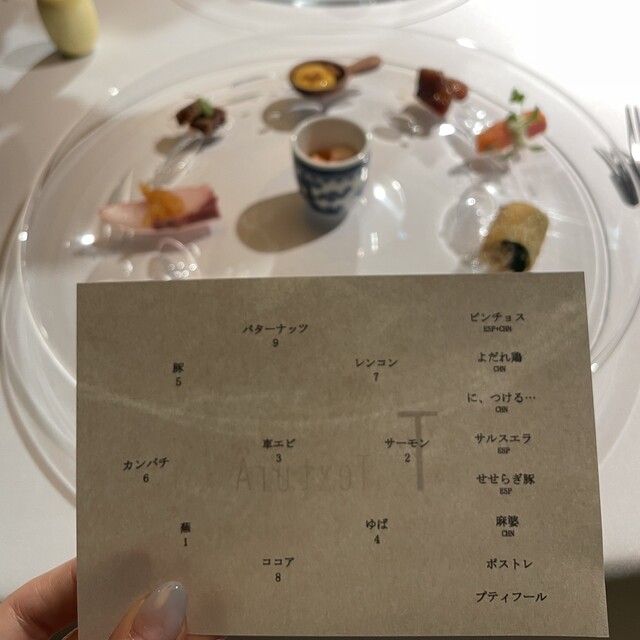 バターナッツ
9
豚
5
レンコン
7
車エビ
3
サーモン
2
カンパチ
6
蕪
1
ゆば
4
ココア
8
ピンチョス
ESP+CHN
よだれ鶏
CHN
に、つける…
CHN
サルスエラ
ESP
せせらぎ豚
ESP
麻婆
CHN
ポストレ
プティフール